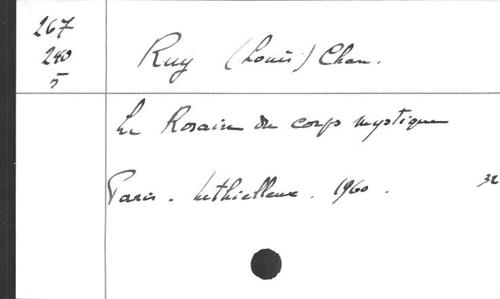 267
240
5
Ruy (Louis) Chan.
Le Rosaire du corps mystique
Paris. Lethielleux. 1960. 32